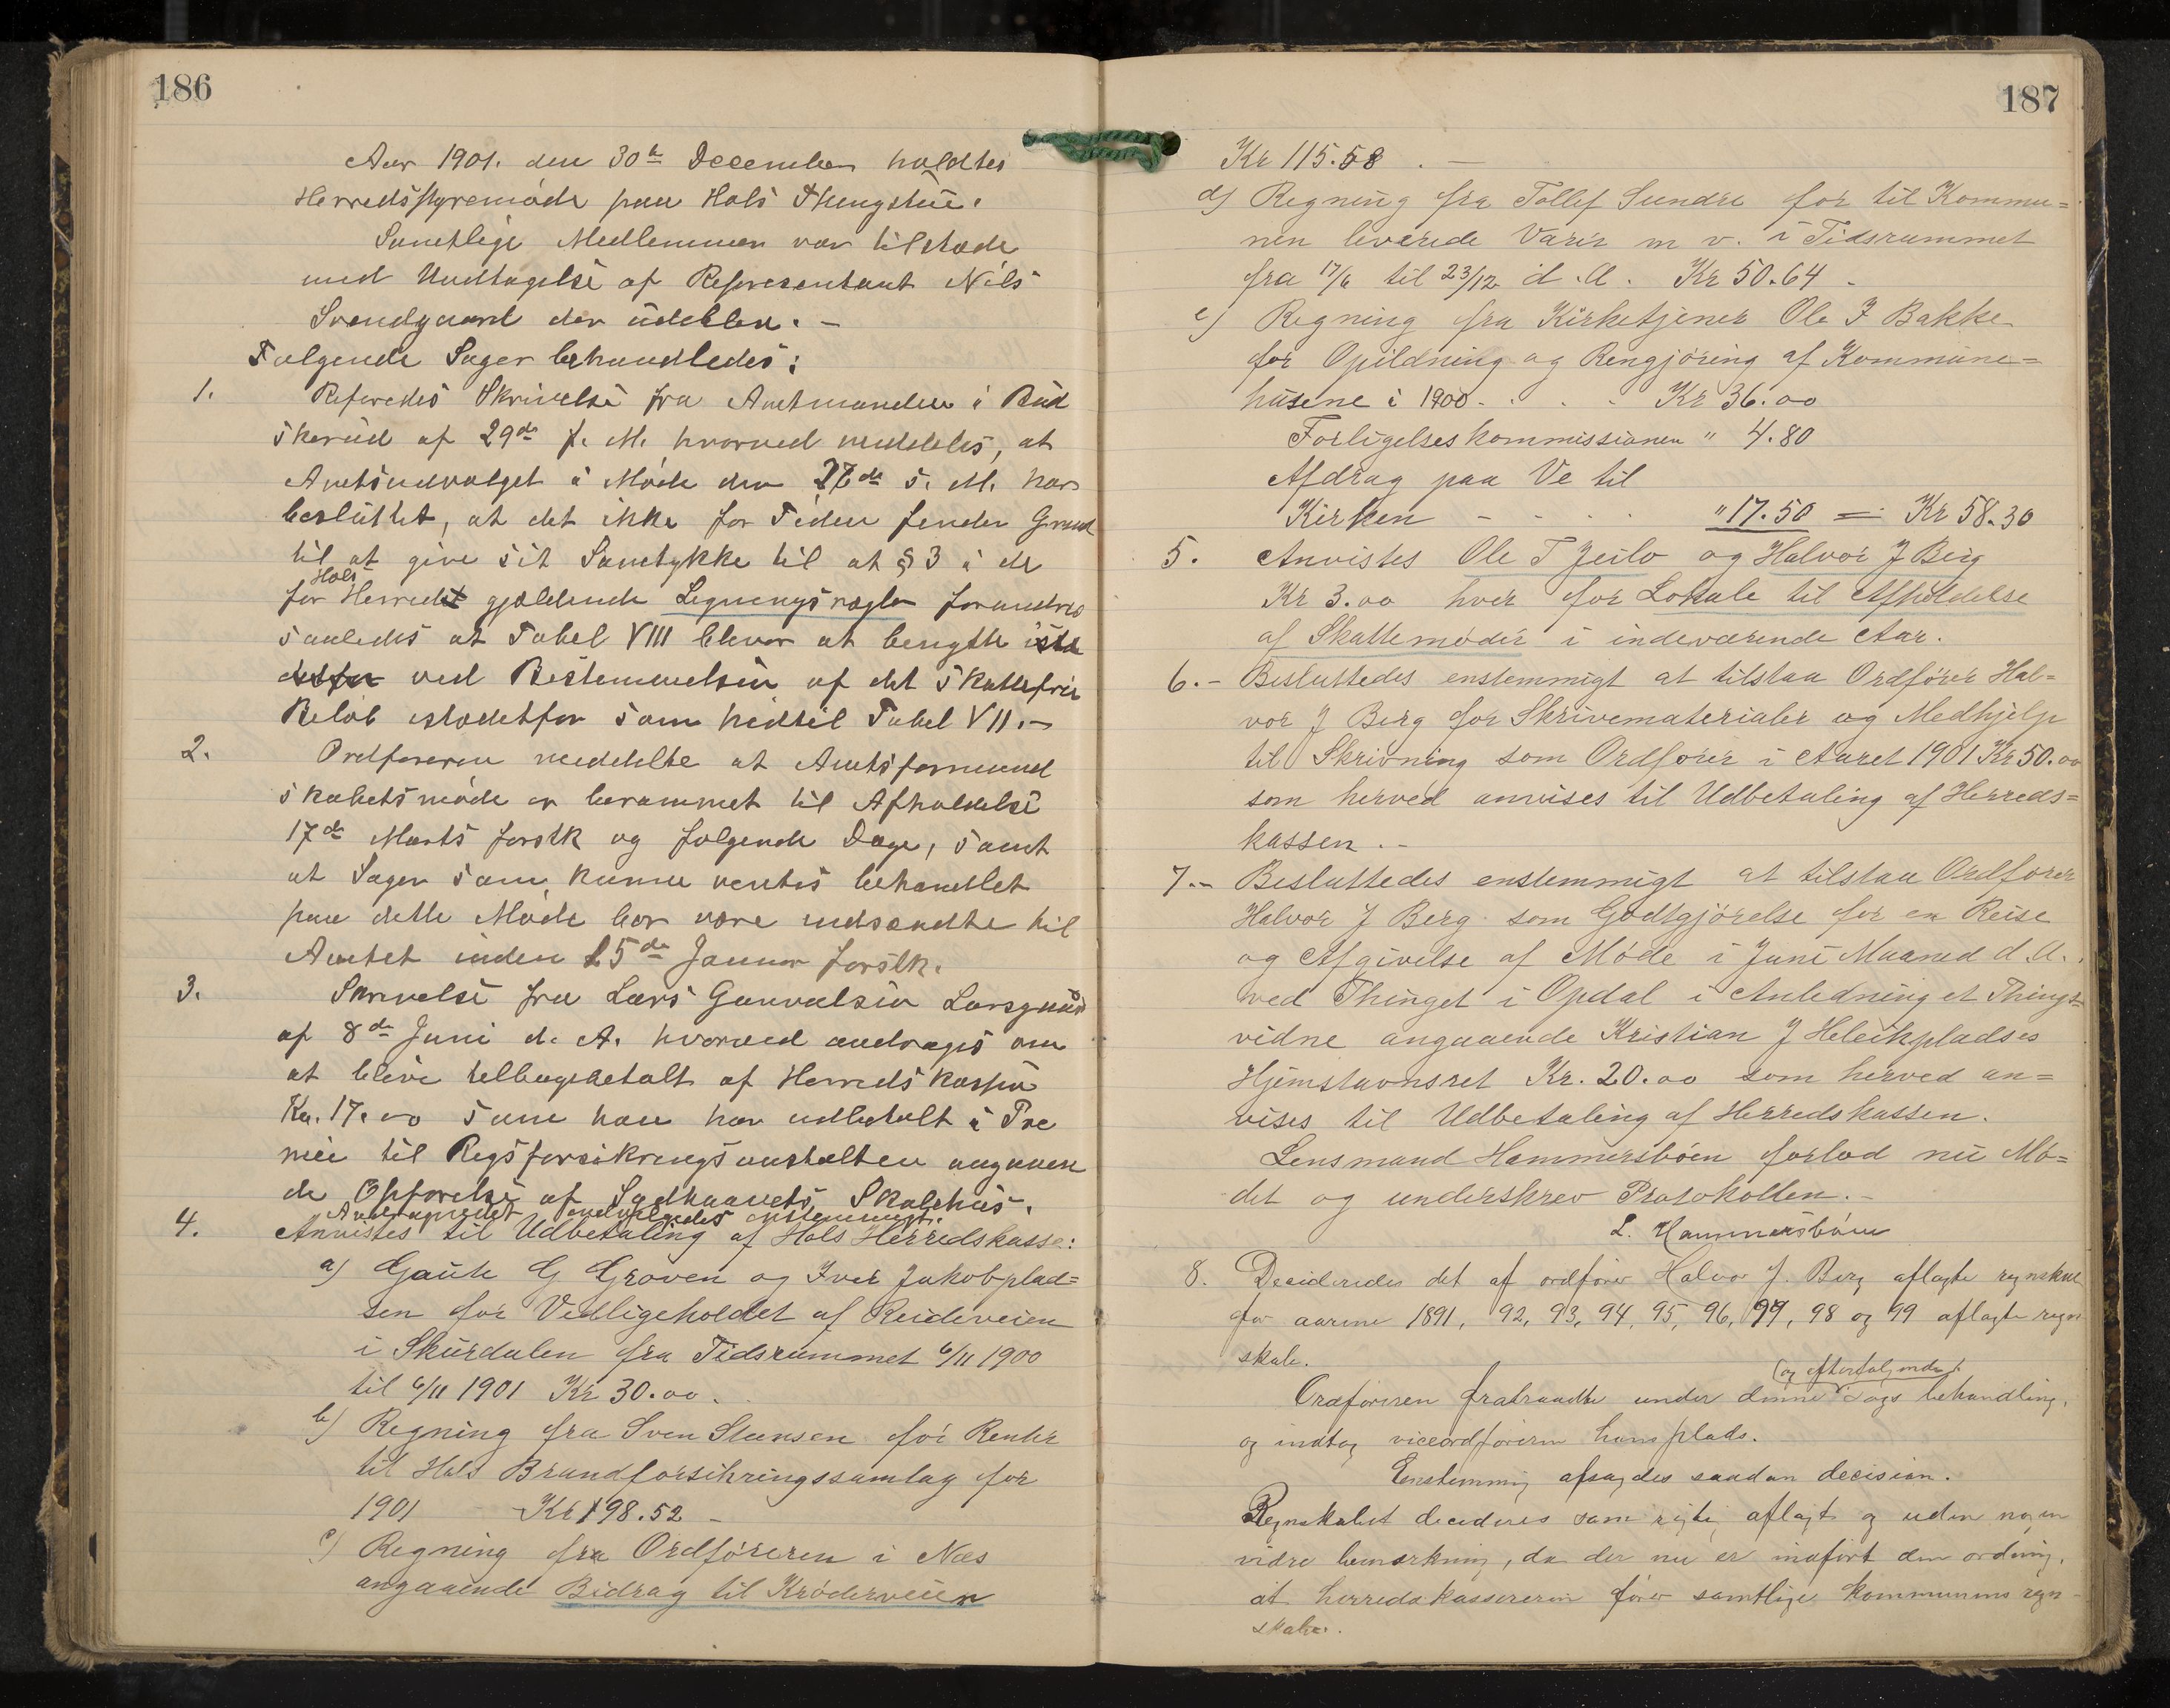 186
Aar 1901. den 30te December holdtes
Herredsstyremöde paa Hols Thingstue.
Samtlige Medlemmer var tilstæde
med Undtagelse af Representant Nils
Svendgaard der udeblev. –
Følgende Sager behandledes:
1. Referedes Skrivelse fra Amtmanden i Bus
kerud af 29de f. M. hvorved meddeles, at
Amtsudvalget i Møde den 27de s. M. har
besluttet, at det ikke for Tiden finder Grund
til at give sit Samtykke til at § 3 i de
for Hols Herred gjældende Ligningsregler forandres
saaledes at Tabel VIII bliver at benytte
ved Bestemmelsen af det skattefrie
Beløb istedetfor som hidtil Tabel VII. –
2. Ordføreren meddelte at Amtsformand
skabetsmøde er berammet til Afholdelse
17de Marts førstk og følgende Dage, samt
at Sager som kunne ventes behandlet
paa dette Møde bør være indsendte til
Amtet inden 15de Januar førstk.
3. Skrivelse fra Lars Gunvalsen Larsgaard
af 8de Juni d. A. hvorved andrages om
at blive tilbagebetalt af Herredskassen
Kr. 17.00 som han har udbetalt i Pre
mie til Rigsforsikringsanstalten angaaen
de Opførelse af Sudhaavets Skolehus.
Andragendet indvilgedes enstemmigt.
4. Anvistes til Udbetaling af Hols Herredskasse:
a) Gaute G Groven og Iver Jakobplad=
sen for Vedligeholdet af Rideveien
i Skurdalen fra Tidsrummet 6/11 1900
til 6/11 1901 Kr 30.00.
b) Regning fra Sven Stensen for Renter
til Hols Brandforsikringssamlag for
1901 – Kr 198.52 –
c) Regning fra Ordföreren i Næs
angaaende Bidrag til Kröderveien
187
Kr 115.58. –
d) Regning fra Tollef Sundre for til Kommu=
nen leverede Varer m v. i Tidsrummet
fra 17/6 til 23/12 d. A. Kr 50.64 –
e) Regning fra Kirketjener Ole I Bakke
for Opildning og Rengjöring af Kommune=
husene i 1900 - . . . Kr 36.00
Forligelseskommissionen " 4.80
Afdrag paa Ve til
Kirken - - . . " 17.50 = Kr 58.30
5. Anvistes Ole T Jeilo og Halvor J Berg
Kr 3.00 hver for Lokale til Afholdelse
af Skattemöder i indeværende Aar.
6. – Besluttedes enstemmigt at tilstaa Ordförer Hal=
vor J Berg for Skrivematerialer og Medhjelp
til Skrivning som Ordförer i Aaret 1901 Kr 50.00
som herved anvises til Udbetaling af Herreds=
kassen. –
7. – Besluttedes enstemmigt at tilstaa Ordförer
Halvor J Berg som Godtgjörelse for en Reise
og Afgivelse af Möde i Juni Maaned d. A.
ved Thinget i Opdal i Anledning et Things=
vidne angaaende Kristian J Heleikpladses
Hjemstavnsret Kr. 20.00 som herved an=
vises til Udbetaling af Herredskassen.
Lensmand Hammersböen forlod nu Mö=
det og underskrev Protokollen. –
L. Hammersböen
8. Decideredes det af ordfører Halvor J. Berg aflagte regnskab
for aarene 1891, 92, 93, 94, 95, 96, 97, 98 og 99 aflagte regn
skab.
Ordføreren fratraadte under denne (og efterfølgende) sags behandling,
og indtog viceordføreren hans plads.
Enstemmig afsagdes saadan decision.
Regnskabet decideres som rigtig aflagt og uden nogen
videre bemærkning, da der nu er indført den ordning,
at herredskassereren fører samtlige kommunens regn-
skaber.